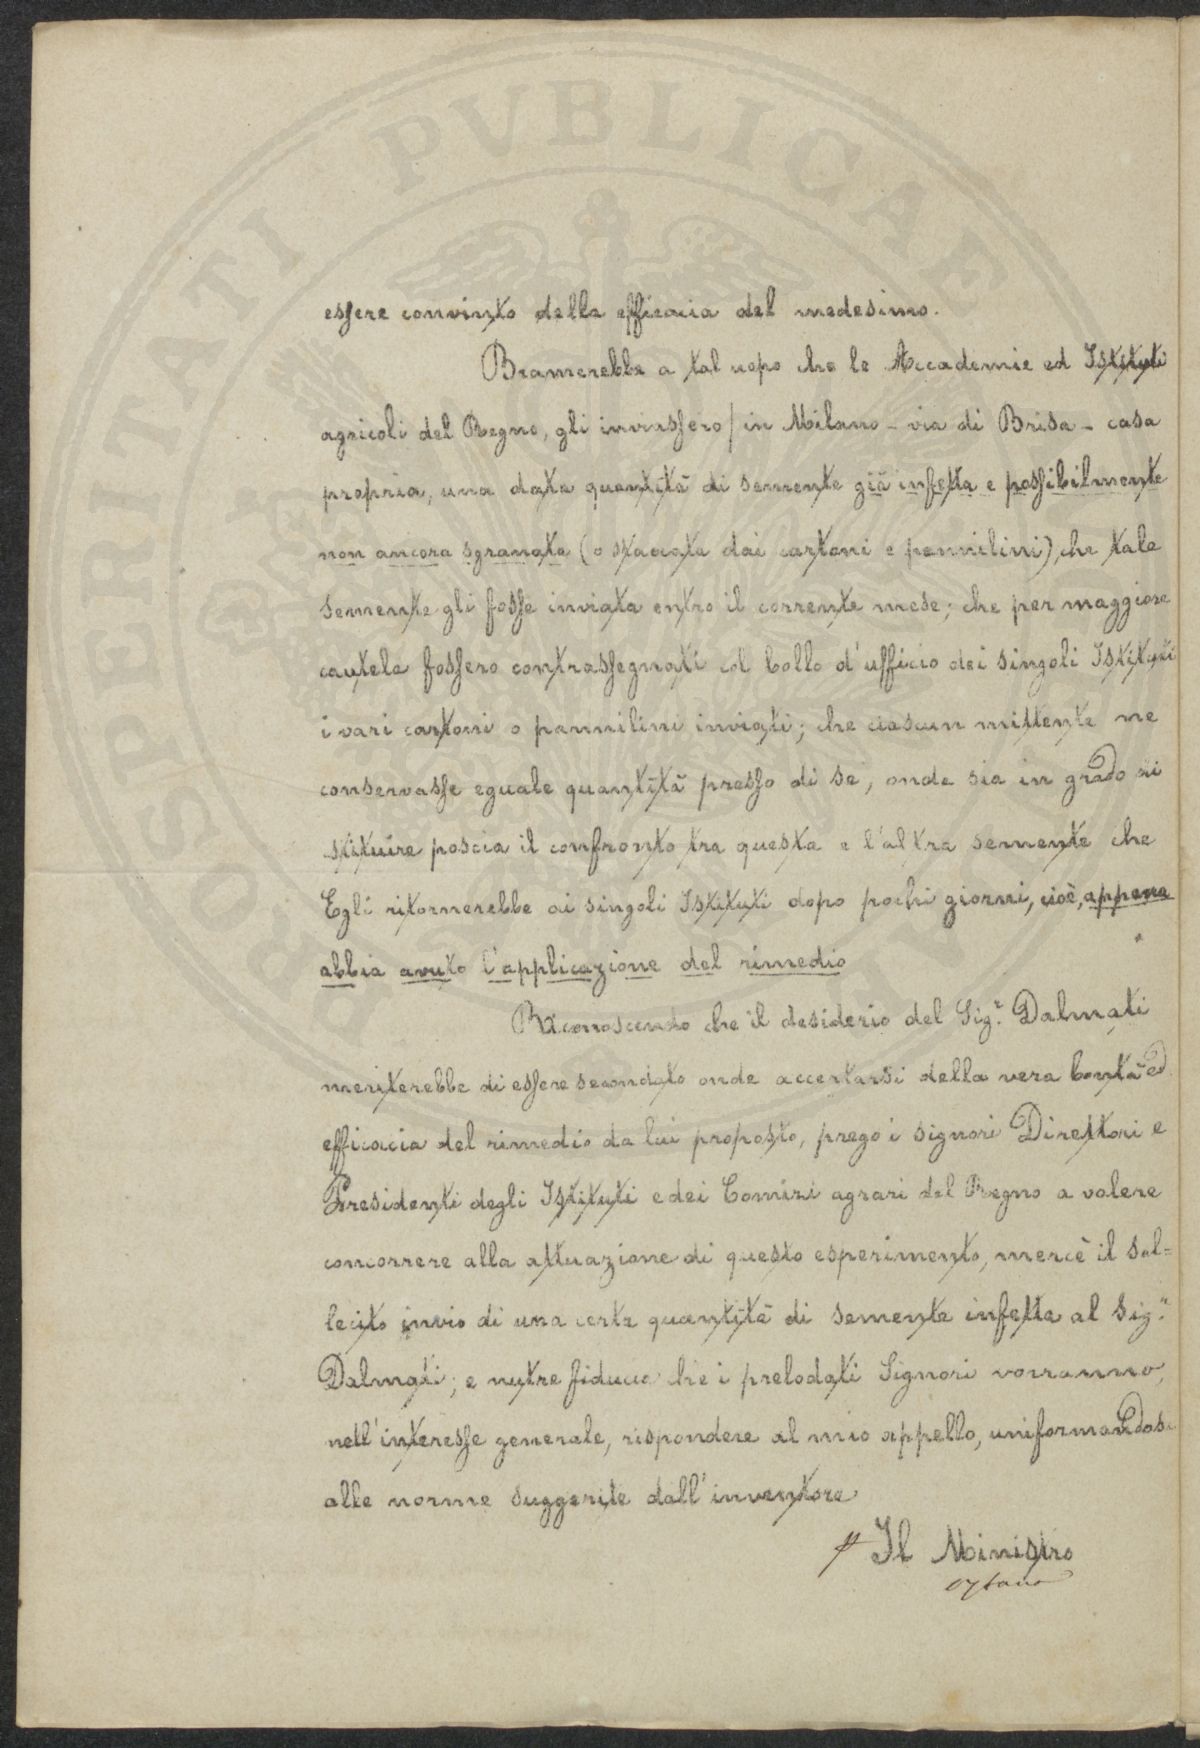 essere convinto della efficacia del medesimo.
Bramerebbe a tal uopo che le Accademie ed Istituti
agricoli del Regno, gli inviassero / in Milano - via di Brisa - casa
propria, una data quantità di semente già infetta e possibilmente
non ancora sgranata (o staccata dai cartoni e pannilini), che tale
semente gli fosse inviata entro il corrente mese; che per maggiore
cautela fossero contrassegnati col bollo d'ufficio dei singoli Istituti
i vari cartoni o pannilini inviati; che ciascun mittente ne
conservasse eguale quantità presso di se, onde sia in grado di
stituire poscia il confronto tra questa e l'altra semente che
Egli ritornerebbe ai singoli Istituti dopo pochi giorni, cioè, appena
abbia avuto l'applicazione del rimedio
Riconoscendo che il desiderio del Sig.r Dalmati
meriterebbe di essere secondato onde accertarsi della vera bontà ed
efficacia del rimedio da lui proposto, prego i signori Direttori e
Presidenti degli Istituti e dei Comizi agrari del Regno a volere
concorrere alla attuazione di questo esperimento, mercè il sol=
lecito invio di una certa quantità di semente infetta al Sig.r
Dalmati; e nutre fiducia che i prelodati Signori vorranno,
nell'interesse generale, rispondere al mio appello, uniformandosi
alle norme suggerite dall'inventore
Il Ministro
PROSPERITATI PVBLICAE